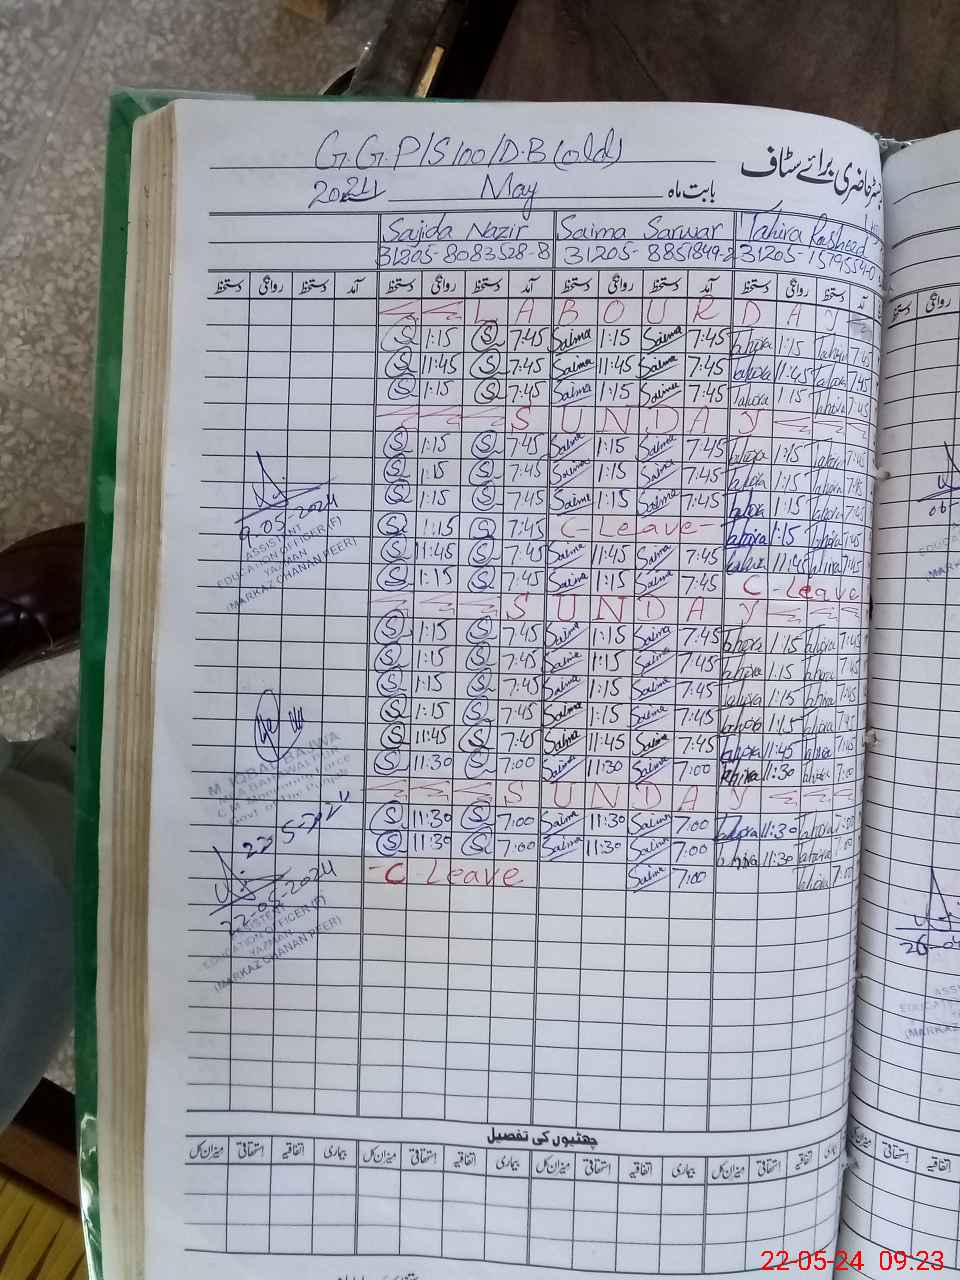 G.G.P/S 100/D.B (old)
رجسٹر حاضری برائے سٹاف
2024 May بابت ماہ
Sajida Nazir Saima Sarwar Tahira Rasheed
31205-8083528-8 31205-8851849-2 31205-1579554-0
دستخط روانگی دستخط آمد دستخط روانگی دستخط آمد دستخط روانگی دستخط آمد دستخط روانگی دستخط آمد
LABOUR DAY
S 1:15 S 7:45 Saima 1:15 Saima 7:45 Tahira 1:15 Tahira 7:45
S 11:45 S 7:45 Saima 11:45 Saima 7:45 Tahira 11:45 Tahira 7:45
S 1:15 S 7:45 Saima 1:15 Saima 7:45 Tahira 1:15 Tahira 7:45
SUNDAY
S 1:15 S 7:45 Saima 1:15 Saima 7:45 Tahira 1:15 Tahira 7:45
S 1:15 S 7:45 Saima 1:15 Saima 7:45 Tahira 1:15 Tahira 7:45
S 1:15 S 7:45 Saima 1:15 Saima 7:45 Tahira 1:15 Tahira 7:45
S 1:15 S 7:45 C-Leave- Tahira 1:15 Tahira 7:45
S 11:45 S 7:45 Saima 11:45 Saima 7:45 Tahira 11:45 Tahira 7:45
S 1:15 S 7:45 Saima 1:15 Saima 7:45 C-Leave
SUNDAY
S 1:15 S 7:45 Saima 1:15 Saima 7:45 Tahira 1:15 Tahira 7:45
S 1:15 S 7:45 Saima 1:15 Saima 7:45 Tahira 1:15 Tahira 7:45
S 1:15 S 7:45 Saima 1:15 Saima 7:45 Tahira 1:15 Tahira 7:45
S 1:15 S 7:45 Saima 1:15 Saima 7:45 Tahira 1:15 Tahira 7:45
S 11:45 S 7:45 Saima 11:45 Saima 7:45 Tahira 11:45 Tahira 7:45
S 11:30 S 7:00 Saima 11:30 Saima 7:00 Tahira 11:30 Tahira 7:00
SUNDAY
S 11:30 S 7:00 Saima 11:30 Saima 7:00 Tahira 11:30 Tahira 7:00
S 11:30 S 7:00 Saima 11:30 Saima 7:00 Tahira 11:30 Tahira 7:00
-C Leave Saima 7:00 Tahira 7:00
9-05-2024
ASSISTANT
EDUCATION OFFICER (F)
YAZMAN
(MARKAZ CHANAN PEER)
M. IQBAL BAJWA
22-05-2024
ASSISTENT
EDUCATION OFFICER (F)
YAZMAN
(MARKAZ CHANAN PEER)
چھٹیوں کی تفصیل
میزان کل استحقاقی اتفاقیہ بیماری میزان کل استحقاقی اتفاقیہ بیماری میزان کل استحقاقی اتفاقیہ بیماری میزان کل استحقاقی اتفاقیہ بیماری
دستخط روانگی
میزان کل استحقاقی اتفاقیہ
22-05-24 09.23